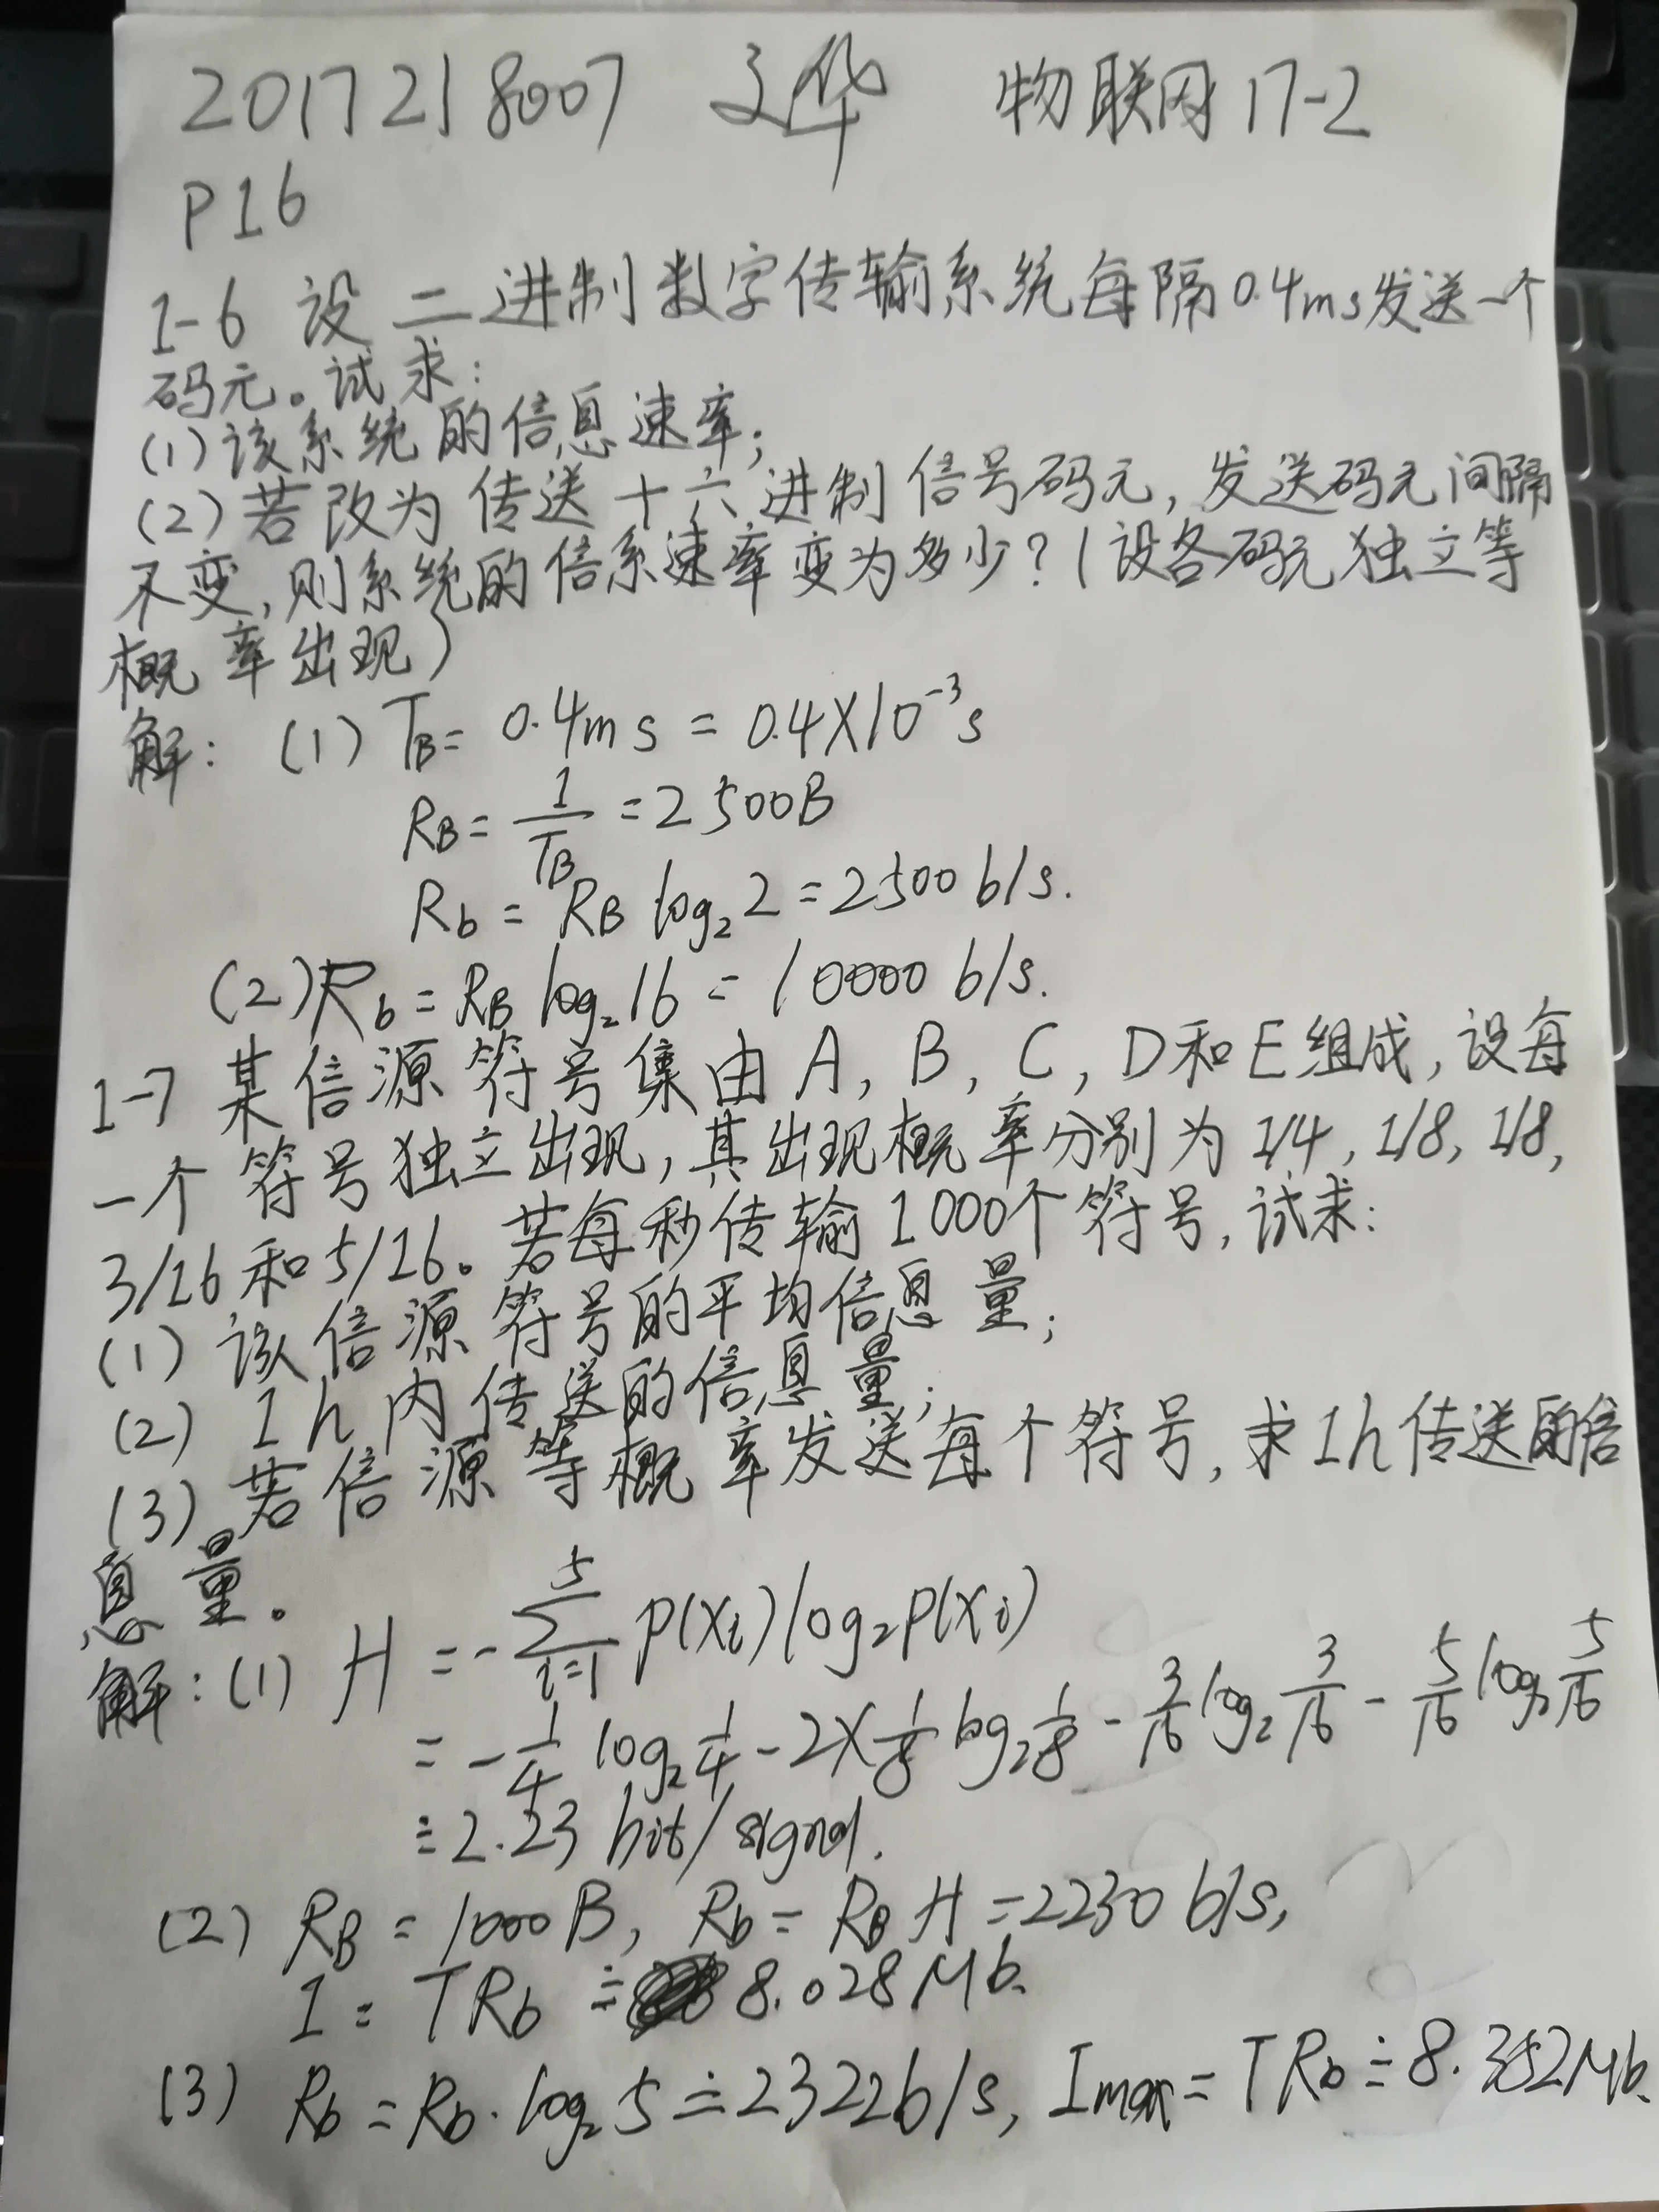 2017218007 文华 物联网17-2
P16
1-6 设二进制数字传输系统每隔0.4ms发送一个
码元。试求:
(1)该系统的信息速率;
(2)若改为传送十六进制信号码元,发送码元间隔
不变,则系统的信系速率变为多少?(设各码元独立等
概率出现)
解: (1) T_B= 0.4ms = 0.4×10⁻³s
R_B= 1/T_B =2500B
R_b = R_B log₂2=2500 b/s.
(2)R_b=R_B log₂16 = 10000 b/s.
1-7 某信源符号集由A, B, C, D和E组成,设每
一个符号独立出现,其出现概率分别为1/4, 1/8, 1/8,
3/16和5/16。若每秒传输1000个符号,试求:
(1) 该信源符号的平均信息量;
(2) 1h内传送的信息量;
(3) 若信源等概率发送每个符号,求1h传送的信
息量。
解:(1) H =-∑_{i=1}^{5} P(x_i)log₂P(x_i)
= -1/4 log₂1/4 -2×1/8 log₂1/8 - 3/16 log₂ 3/16 - 5/16 log₂ 5/16
≐2.23 bit/signal.
(2) R_B = 1000B, R_b= R_B H =2230 b/s,
I = TR_b ≐ 8.028Mb.
(3) R_b = R_b·log₂5 ≐2322b/s, Imax= TR_b≐8.352Mb.